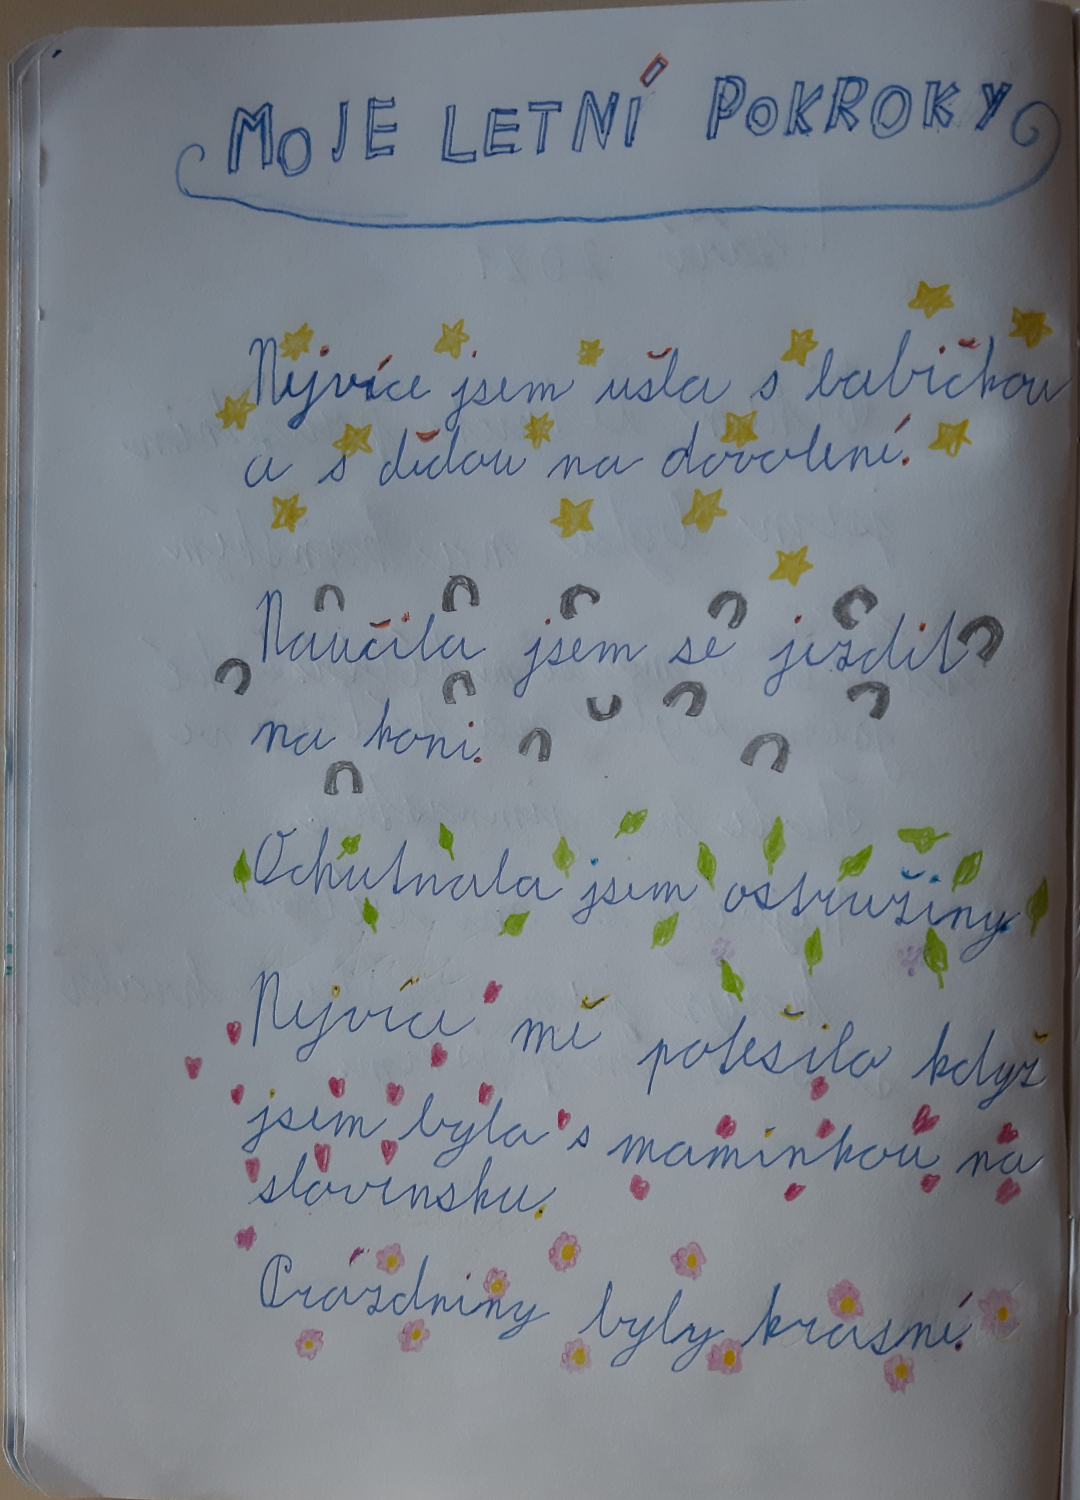 MOJE LETNÍ POKROKY
Nejvíce jsem ušla s babičkou
a s dědou na dovolené.
Naučila jsem se jezdit
na koni.
Ochutnala jsem ostružiny.
Nejvíce mě potešilo když
jsem byla s maminkou na
slovensku.
Prázdniny byly krasné.